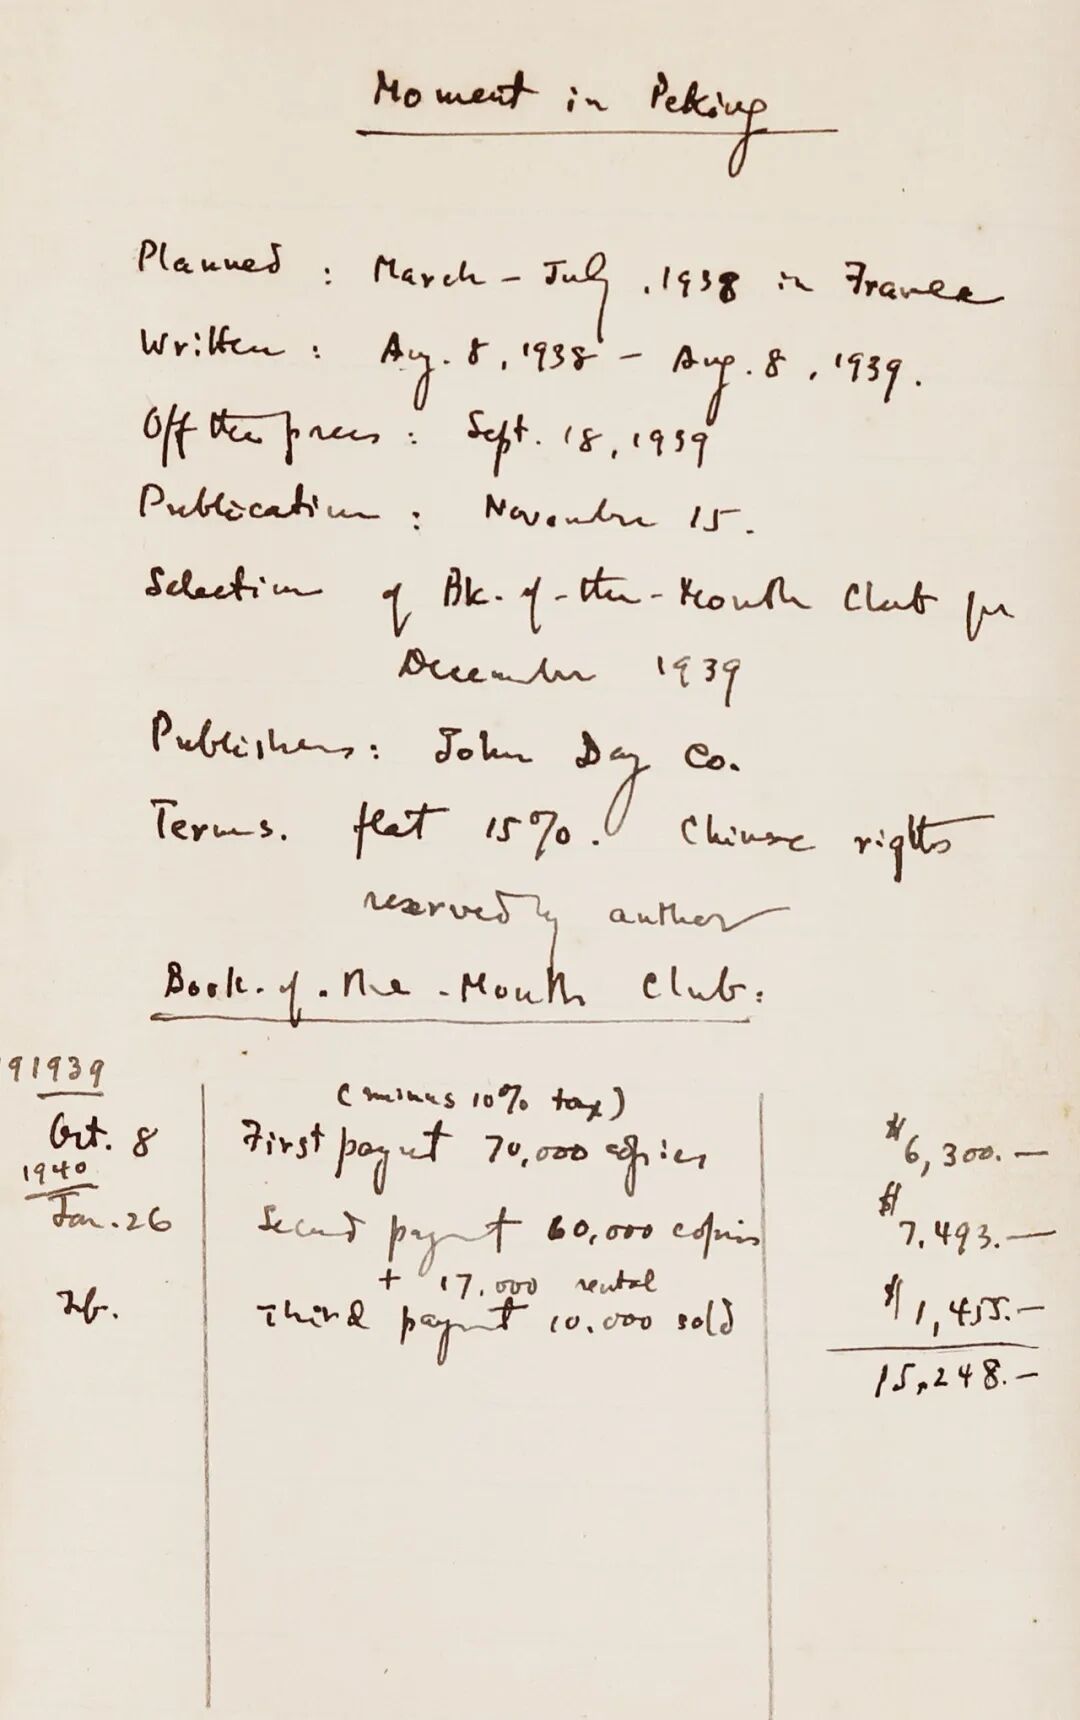 Moment in Peking
Planned : March – July, 1938 in France
Written : Aug. 8, 1938 – Aug. 8, 1939.
Off the press : Sept. 18, 1939
Publication : November 15.
Selection of Bk. of-the-Month Club for
December 1939
Publishers : John Day Co.
Terms. flat 15%. Chinese rights
reserved by author
Book.of.the.Month Club:
1939
(minus 10% tax)
Oct. 8 First paymt 70,000 copies $6,300.—
1940
Jan. 26 Second paymt 60,000 copies $7,493.—
+ 17,000 rental
Feb. Third paymt 10,000 sold $1,455.—
15,248.—